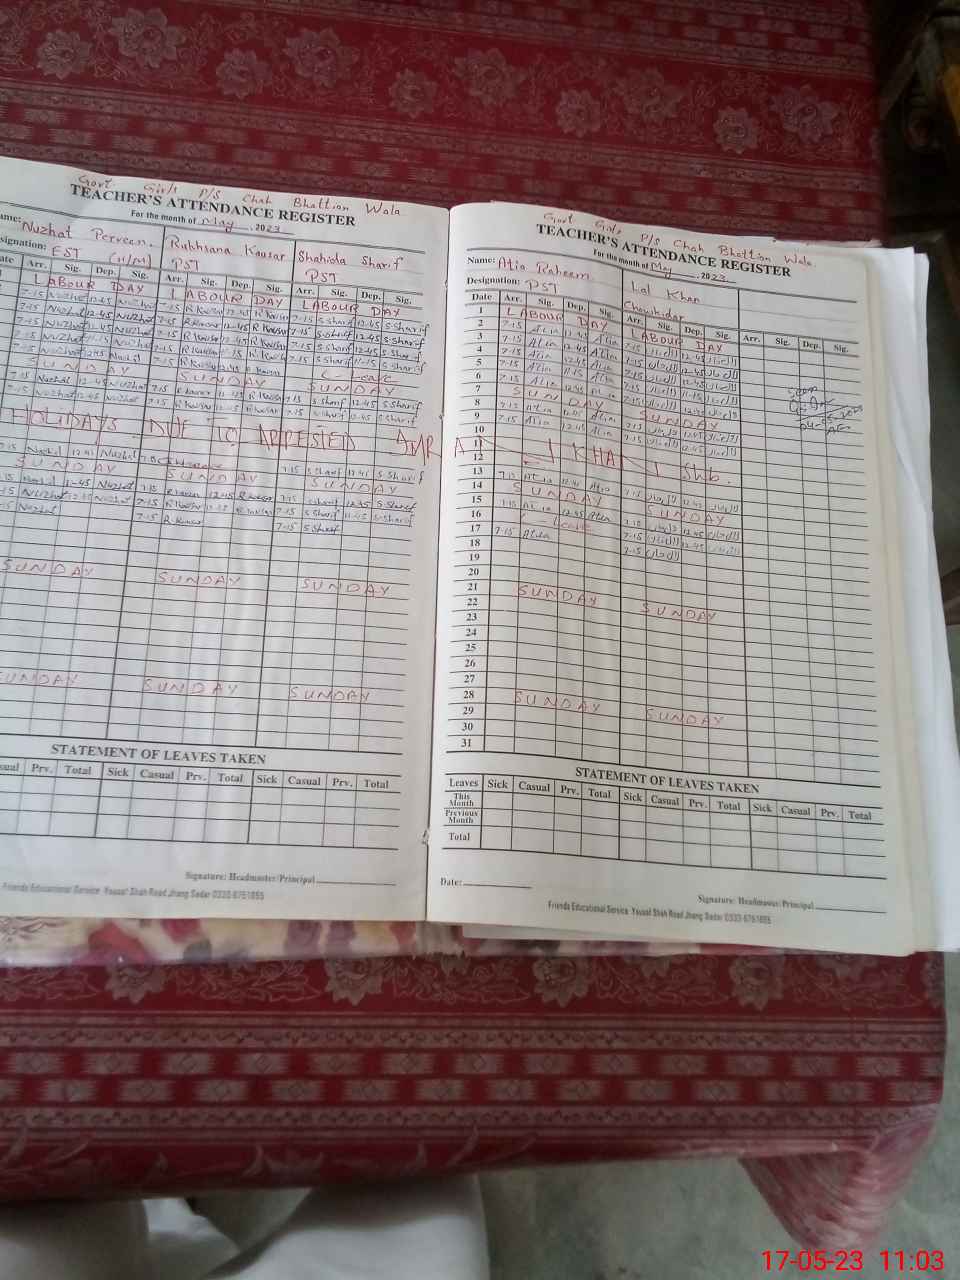 Govt Girls P/S Chah Bhattian Wala
TEACHER'S ATTENDANCE REGISTER
For the month of May, 2023
ame: Nuzhat Perveen. Rukhsana Kausar Shahida Sharif
signation: EST (H/M) PST PST
ate Arr. Sig. Dep. Sig. Arr. Sig. Dep. Sig. Arr. Sig. Dep. Sig.
LABOUR DAY LABOUR DAY LABOUR DAY
7-15 Nuzhat 12-45 Nuzhat 7-15 R Kausar 12-45 R Kausar 7-15 S Sharif 12-45 S Sharif
7-15 Nuzhat 12-45 Nuzhat 7-15 R Kausar 12-45 R Kausar 7-15 S Sharif 12-45 S Sharif
7-15 Nuzhat 12-45 Nuzhat 7-15 R Kausar 12-45 R Kausar 7-15 S Sharif 12-45 S Sharif
7-15 Nuzhat 11-15 Nuzhat 7-15 R Kausar 11-15 R Kausar 7-15 S Sharif 11-15 S Sharif
7-15 Nuzhat 12-45 Nuzhat 7-15 R Kausar 12-45 R Kausar C-Leave
SUNDAY SUNDAY SUNDAY
7-15 Nuzhat 12-45 Nuzhat 7-15 R Kausar 12-45 R Kausar 7-15 S Sharif 12-45 S Sharif
7-15 Nuzhat 12-45 Nuzhat 7-15 R Kausar 12-45 R Kausar 7-15 S Sharif 12-45 S Sharif
HOLIDAYS DUE TO ARRESTED IMRAN KHAN Shb.
7-15 Nuzhat 12-45 Nuzhat 7-15 S Sharif 12-45 S Sharif
SUNDAY SUNDAY SUNDAY
7-15 Nuzhat 12-45 Nuzhat 7-15 R Kausar 12-45 R Kausar 7-15 S Sharif 12-45 S Sharif
7-15 Nuzhat 12-45 Nuzhat 7-15 R Kausar 12-45 R Kausar 7-15 S Sharif 12-45 S Sharif
7-15 Nuzhat 7-15 R Kausar 7-15 S Sharif
SUNDAY SUNDAY SUNDAY
SUNDAY SUNDAY SUNDAY
STATEMENT OF LEAVES TAKEN
sual Prv. Total Sick Casual Prv. Total Sick Casual Prv. Total
Signature: Headmaster/Principal
Friends Educational Service Yousaf Shah Road Jhang Sadar 0333-6751655
Govt Girls P/S Chah Bhattian Wala
TEACHER'S ATTENDANCE REGISTER
For the month of May, 2023
Name: Atia Raheem Lal Khan
Designation: PST Chowkidar
Date Arr. Sig. Dep. Sig. Arr. Sig. Dep. Sig. Arr. Sig. Dep. Sig.
1 LABOUR DAY LABOUR DAY
2 7-15 Atia 12-45 Atia 7-15 12-45
3 7-15 Atia 12-45 Atia 7-15 12-45
4 7-15 Atia 12-45 Atia 7-15 12-45
5 7-15 Atia 11-15 Atia 7-15 11-15
6 7-15 Atia 12-45 Atia 7-15 12-45
7 SUNDAY SUNDAY
8 7-15 Atia 12-45 Atia 7-15 12-45
9 7-15 Atia 12-45 Atia 7-15 12-45
10
11
12
13 7-15 Atia 12-45 Atia 7-15 12-45
14 SUNDAY SUNDAY
15 7-15 Atia 12-45 Atia 7-15 12-45
16 C-Leave 7-15 12-45
17 7-15 Atia 7-15
18
19
20
21 SUNDAY SUNDAY
22
23
24
25
26
27
28 SUNDAY SUNDAY
29
30
31
STATEMENT OF LEAVES TAKEN
Leaves Sick Casual Prv. Total Sick Casual Prv. Total Sick Casual Prv. Total
This Month
Previous Month
Total
Date:
Signature: Headmaster/Principal
Friends Educational Service Yousaf Shah Road Jhang Sadar 0333-6751655
17-05-23 11:03